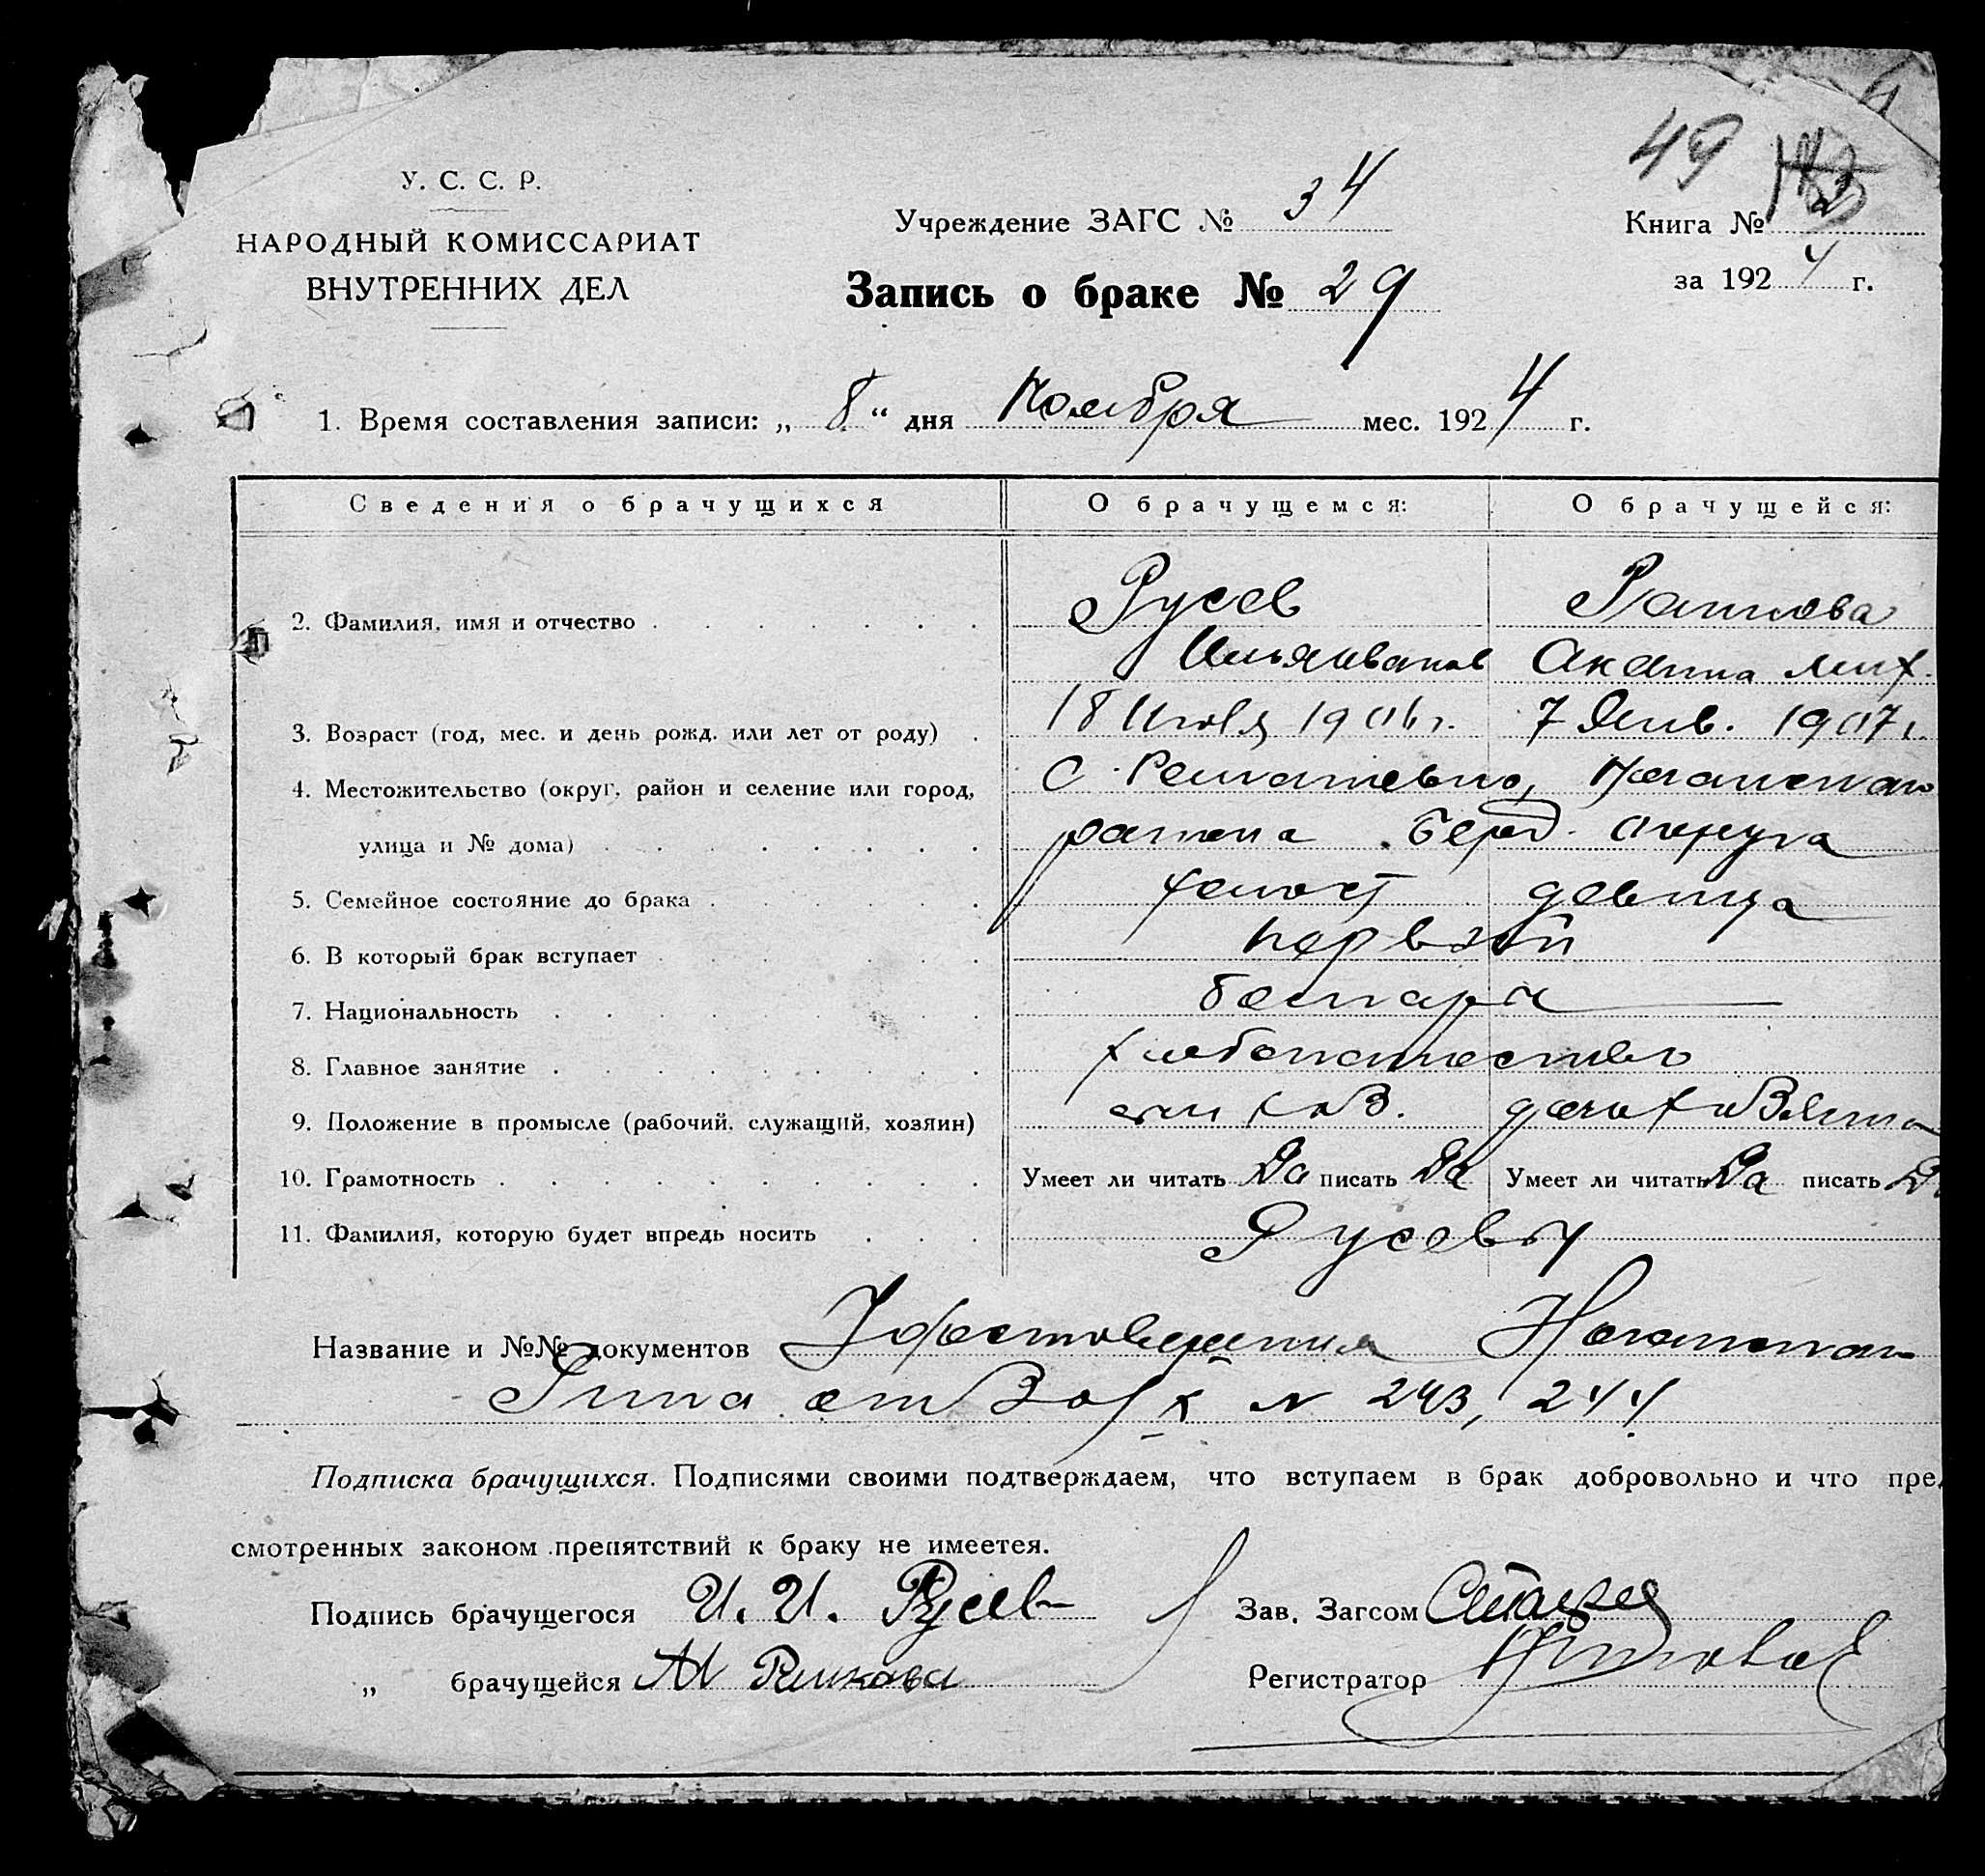 49
У. С. С. Р.
НАРОДНЫЙ КОМИССАРИАТ
ВНУТРЕННИХ ДЕЛ
Учреждение ЗАГС № 34
Книга №
за 1924 г.
Запись о браке № 29
1. Время составления записи: „ 8 “ дня Ноября мес. 1924 г.
Сведения о брачущихся О брачущемся: О брачущейся:
2. Фамилия, имя и отчество Русев
Илья Иванов Мих.
3. Возраст (год, мес. и день рожд. или лет от роду) 18 1906 г. 7 Янв. 1907 г.
4. Местожительство (округ, район и селение или город, С.
улица и № дома) района Берд. округа
5. Семейное состояние до брака холост девица
6. В который брак вступает первый
7. Национальность болгары
8. Главное занятие хлебопашество
9. Положение в промысле (рабочий, служащий, хозяин) дочь хозяина
10. Грамотность Умеет ли читать Да писать Да Умеет ли читать Да писать Да
11. Фамилия, которую будет впредь носить Русевы
Название и №№ документов Удостоверения Ногайского
Рика от № 243, 244
Подписка брачущихся. Подписями своими подтверждаем, что вступаем в брак добровольно и что пред
смотренных законом препятствий к браку не имеетея.
Подпись брачущегося И. И. Русев Зав. Загсом
„ брачущейся Регистратор